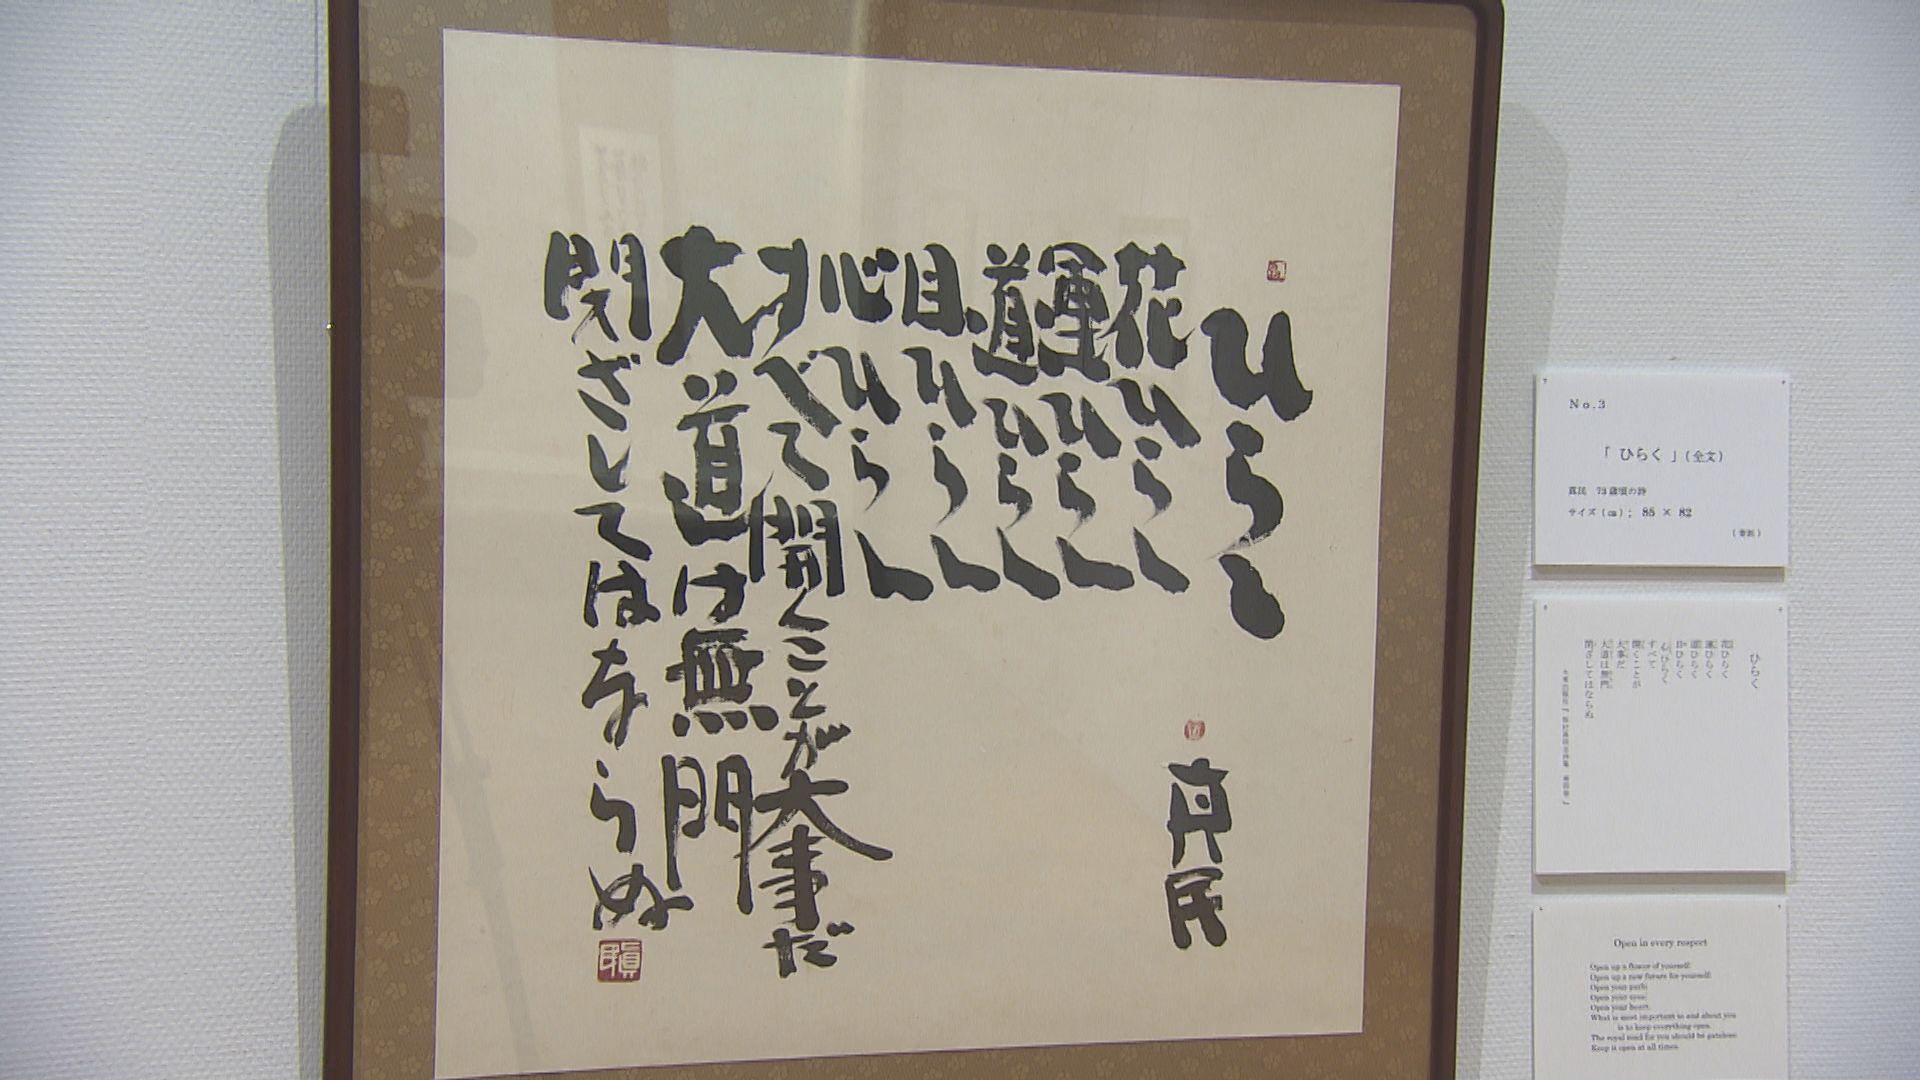 ひらく
真民
花ひらく
運ひらく
道ひらく
目ひらく
心ひらく
すべて開くことが大事だ
大道は無門
閉ざしてはならぬ
No.3
「ひらく」(全文)
真民 73歳頃の詩
サイズ(㎝); 85 × 82
ひらく
花ひらく
運ひらく
道ひらく
目ひらく
心ひらく
すべて
開くことが
大事だ
大道は無門
閉ざしてはならぬ
Open in every respect
Open up a flower of yourself;
Open up a new future for yourself;
Open your path;
Open your eyes;
Open your heart.
What is most important in and about you
is to keep everything open.
The royal road for you should be gateless:
Keep it open at all times.